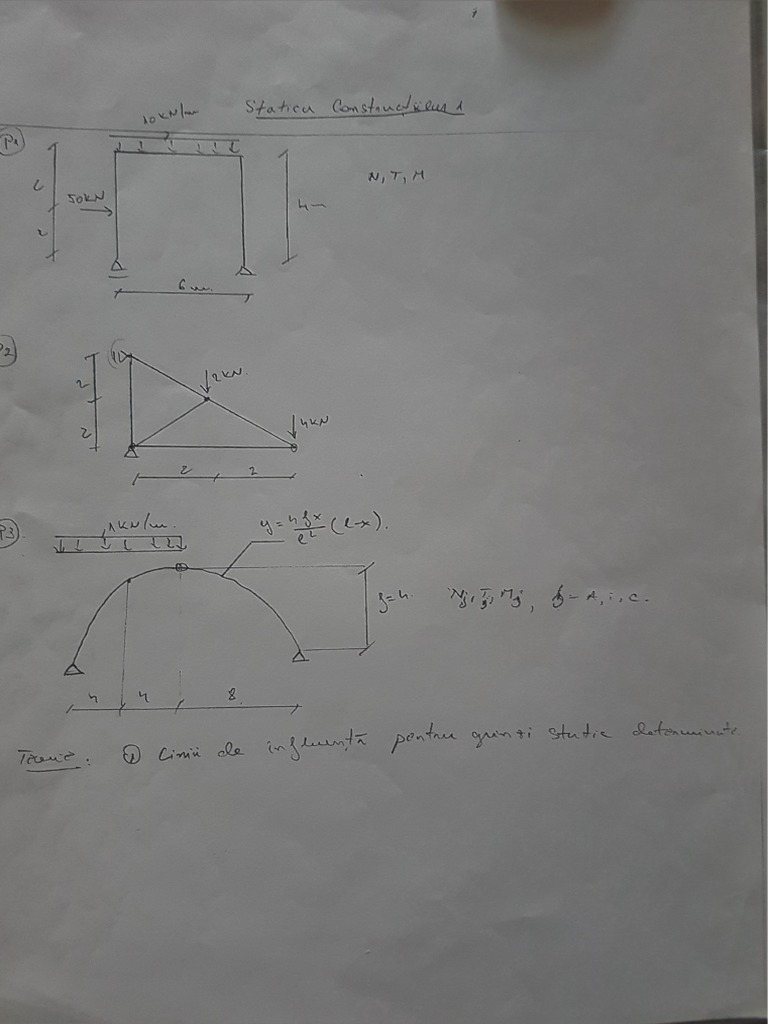 Statica Construcțiilor 1
10KN/m
P1
2
2
50KN
N, T, M
4m
6m.
P2
2
2
2KN.
4KN
2 2
P3
1KN/m.
y = 4fx/l² (l-x).
f=4.
Nj, Tj, Mj, j = A, i, C.
4 4 8
Teorie: ① Linii de influență pentru grinzi static determinate